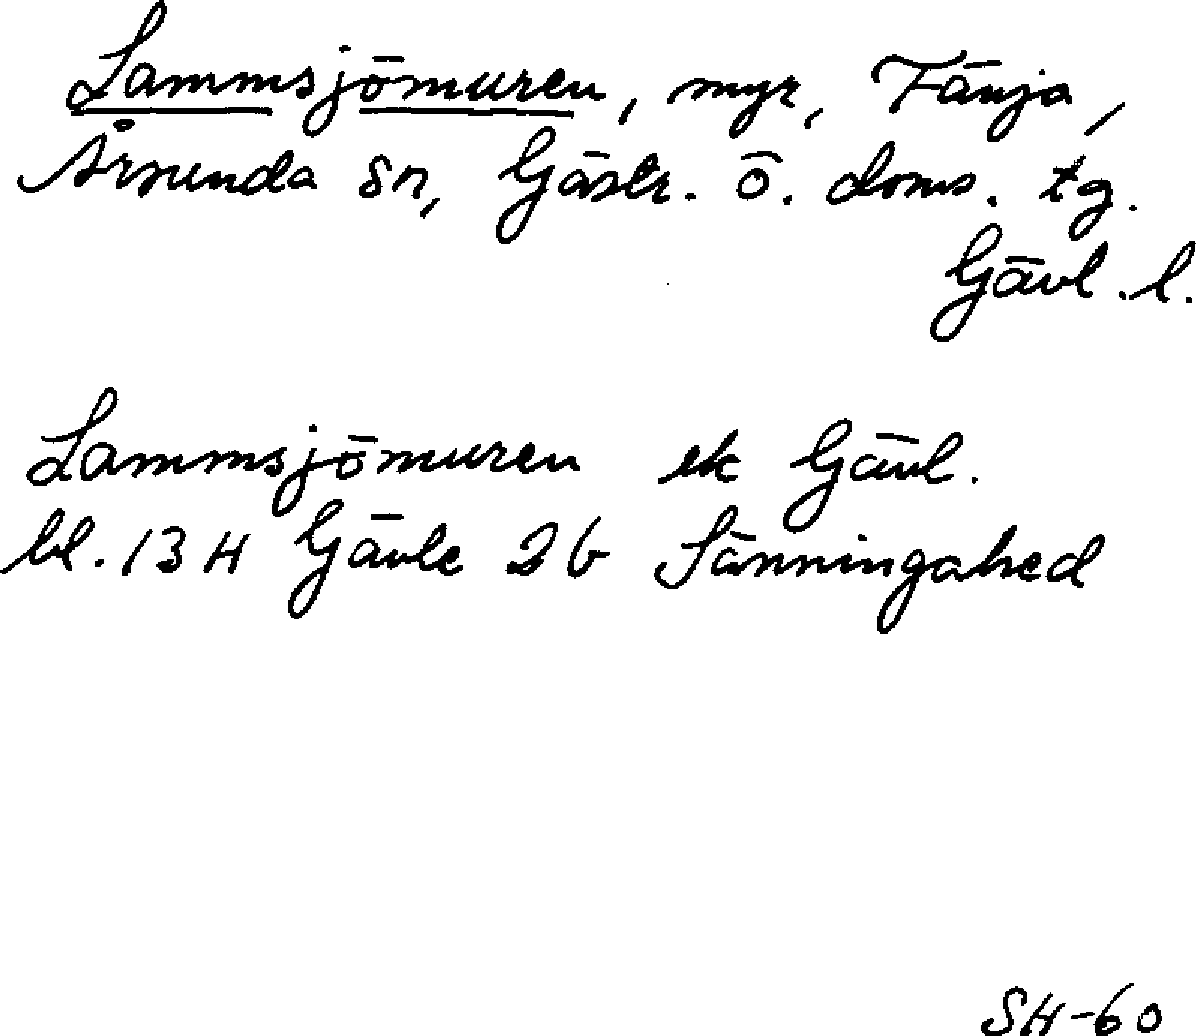 Lammsjömuren, myr, Fänja,
Årsunda sn, Gästr. ö. doms. tg.
Gävl. l.
Lammsjömuren ek Gävl.
bl. 13 H Gävle 2b Sänningahed
SH-60